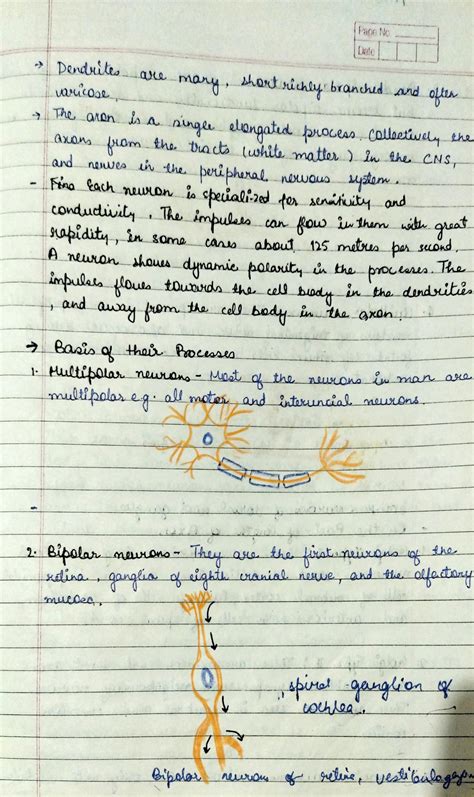 Page No
Date
→ Dendrites are many, short richly branched and often
varicose.
→ The axon is a single elongated process. Collectively the
axons from the tracts (white matter) in the CNS,
and nerves in the peripheral nervous system.
- Fins Each neuron is specialized for sensitivity and
conductivity. The impulses can flow in them with great
rapidity, in some cases about 125 metres per second.
A neuron shows dynamic polarity in the processes. The
impulse flows towards the cell body in the dendrities
, and away from the cell body in the axon.
→ Basis of their Processes
1. Multipolar neurons - Most of the neurons in man are
multipolar e.g. all motor and interuncial neurons.
-
2. Bipolar neurons - They are the first neurons of the
retina, ganglia of eighth cranial nerve, and the olfactory
mucosa.
spiral ganglion of
cochlea.
Bipolar neurons of retina,